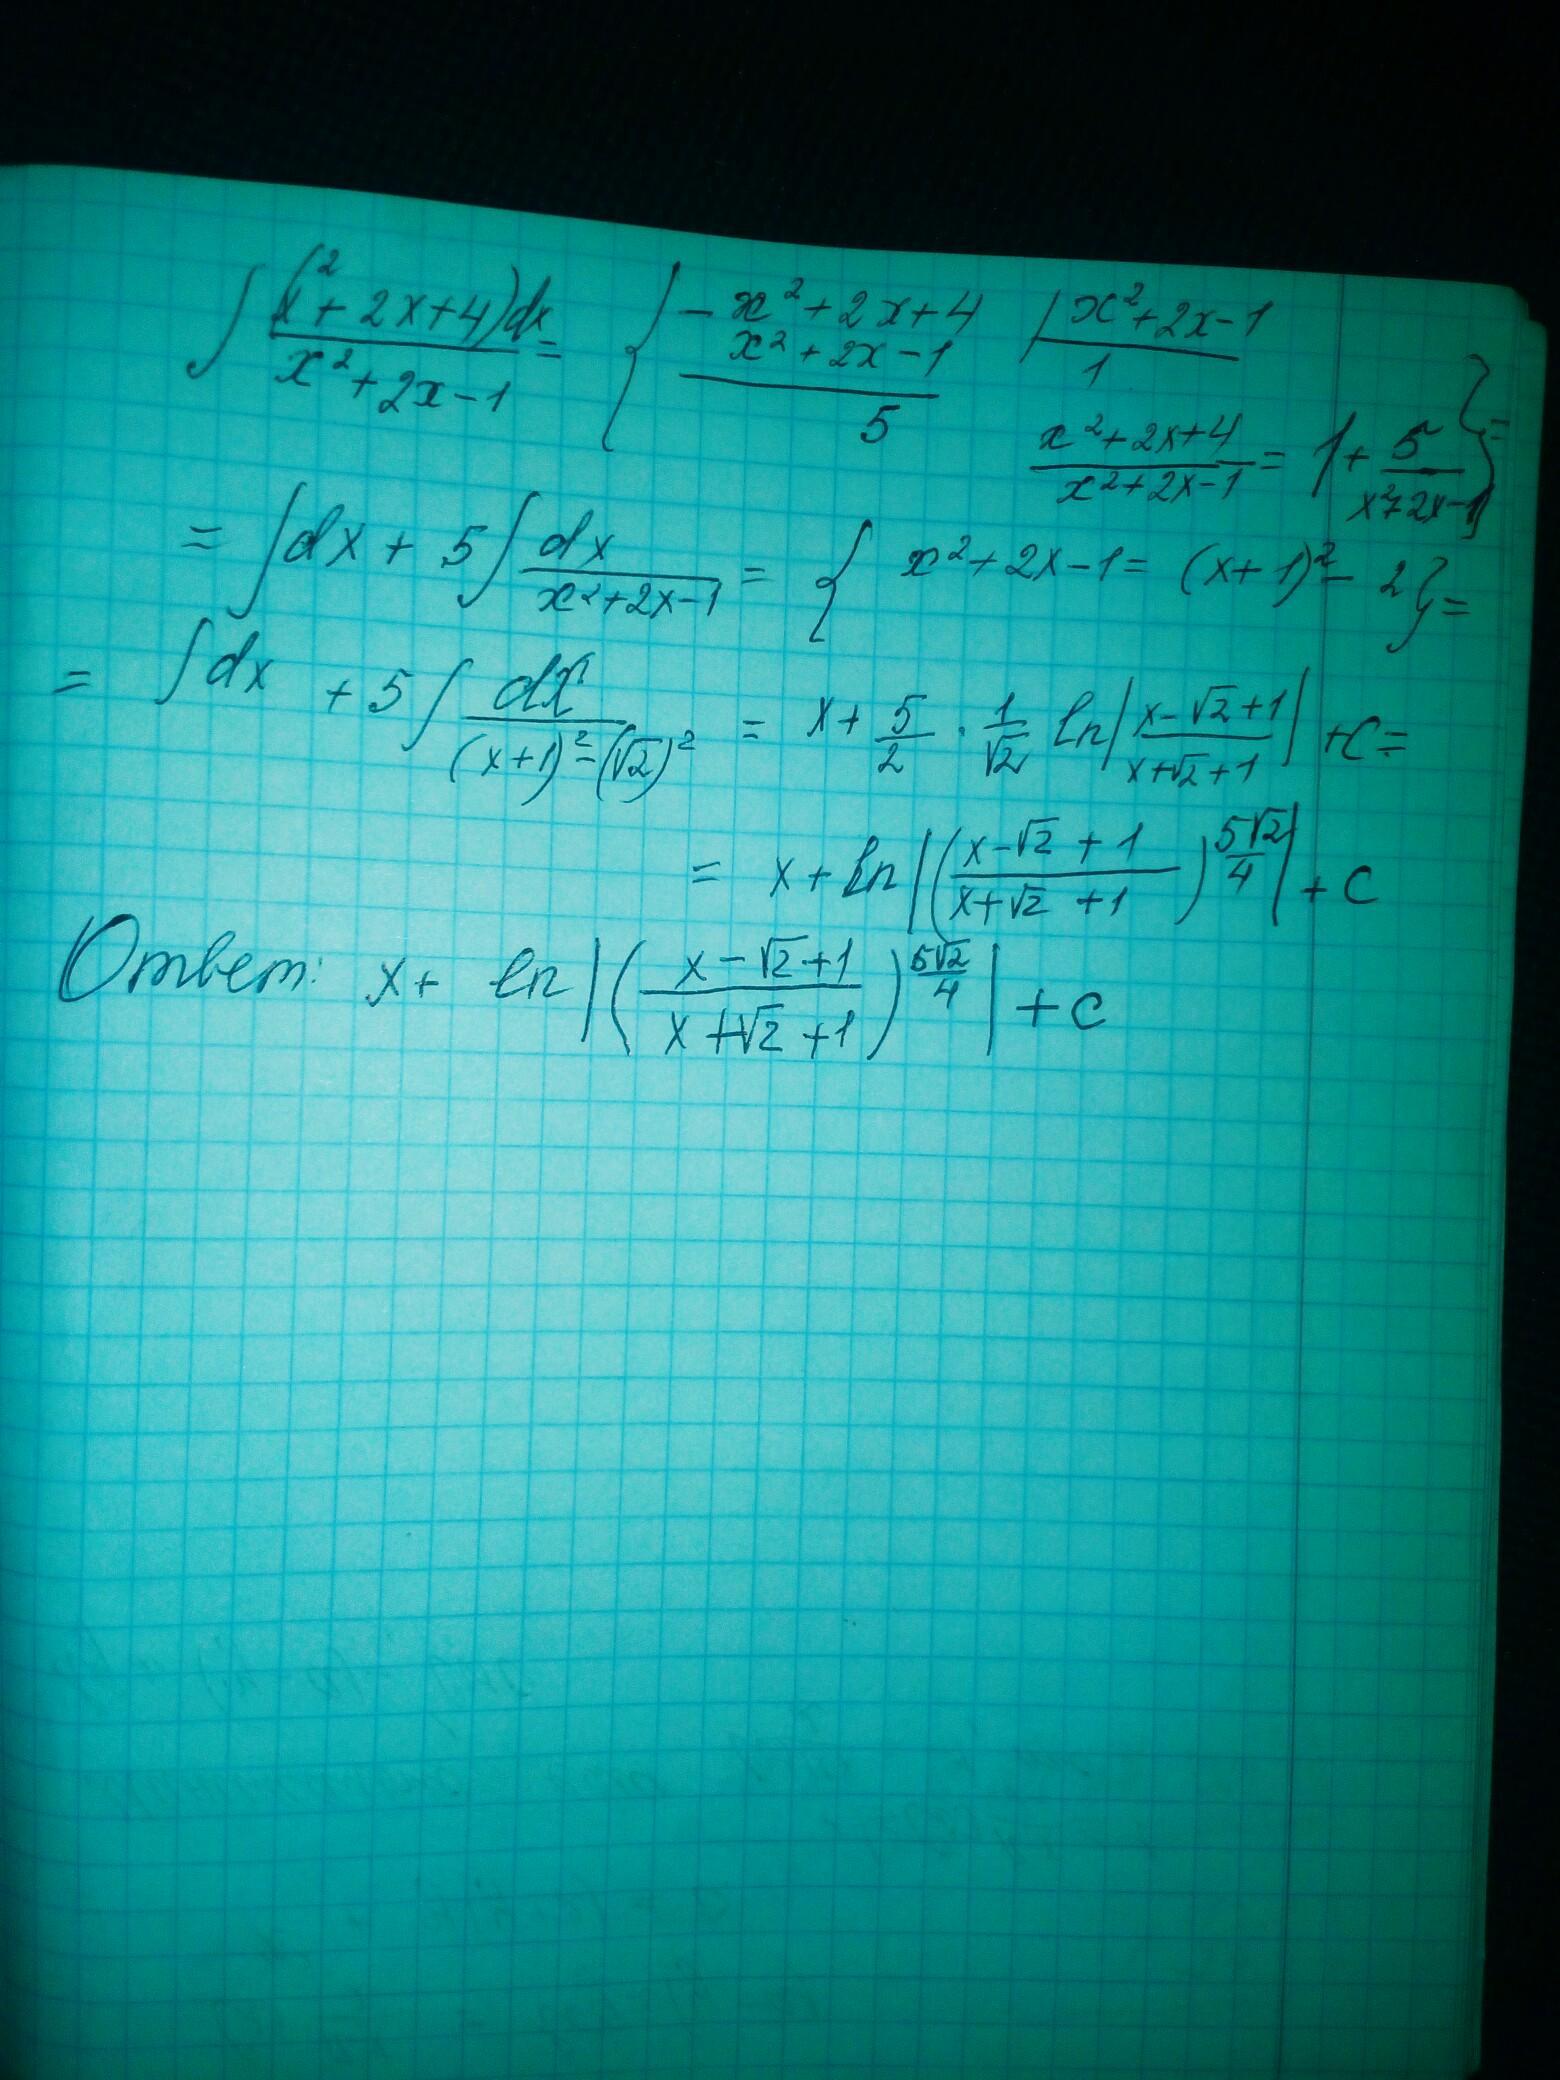 ∫ (x²+2x+4)dx / x²+2x-1 = { - x²+2x+4 | x²+2x-1
x²+2x-1 | 1
5
x²+2x+4 / x²+2x-1 = 1 + 5 / x²+2x-1 } =
= ∫dx + 5∫ dx / x²+2x-1 = { x²+2x-1 = (x+1)² - 2 } =
= ∫dx + 5∫ dx / (x+1)²-(√2)² = x + 5/2 · 1/√2 ln| x-√2+1 / x+√2+1 | + C =
= x + ln|( x-√2+1 / x+√2+1 )^(5√2/4)| + C
Ответ: x + ln|( x-√2+1 / x+√2+1 )^(5√2/4)| + C